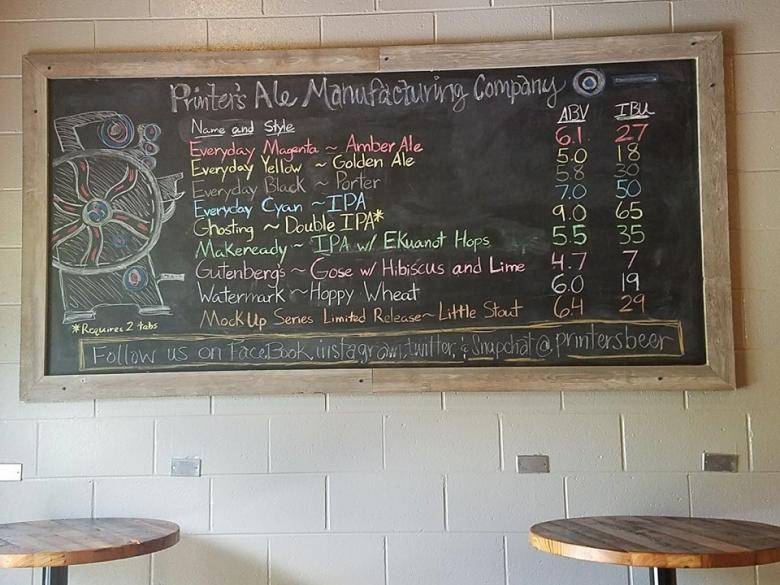 Printer's Ale Manufacturing Company
Name and Style ABV IBU
Everyday Magenta ~ Amber Ale 6.1 27
Everyday Yellow ~ Golden Ale 5.0 18
Everyday Black ~ Porter 5.8 30
Everyday Cyan ~ IPA 7.0 50
Ghosting ~ Double IPA* 9.0 65
Makeready ~ IPA w/ Ekuanot Hops 5.5 35
Gutenbergs ~ Gose w/ Hibiscus and Lime 4.7 7
Watermark ~ Hoppy Wheat 6.0 19
Mock Up Series Limited Release ~ Little Stout 6.4 29
*Requires 2 tabs
Follow us on FaceBook, instagram, twitter, & Snapchat @printersbeer